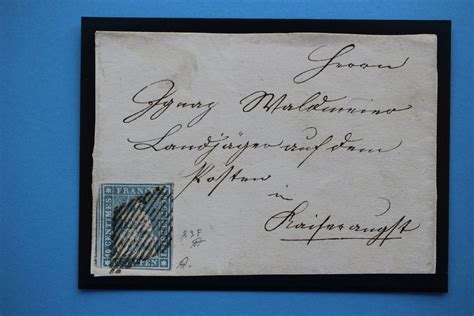 Herrn
Ignaz Waldmeier
Landjäger auf dem
Posten
in
Kaiseraugst
FRANCO
10 CENTIMES
23F
A.